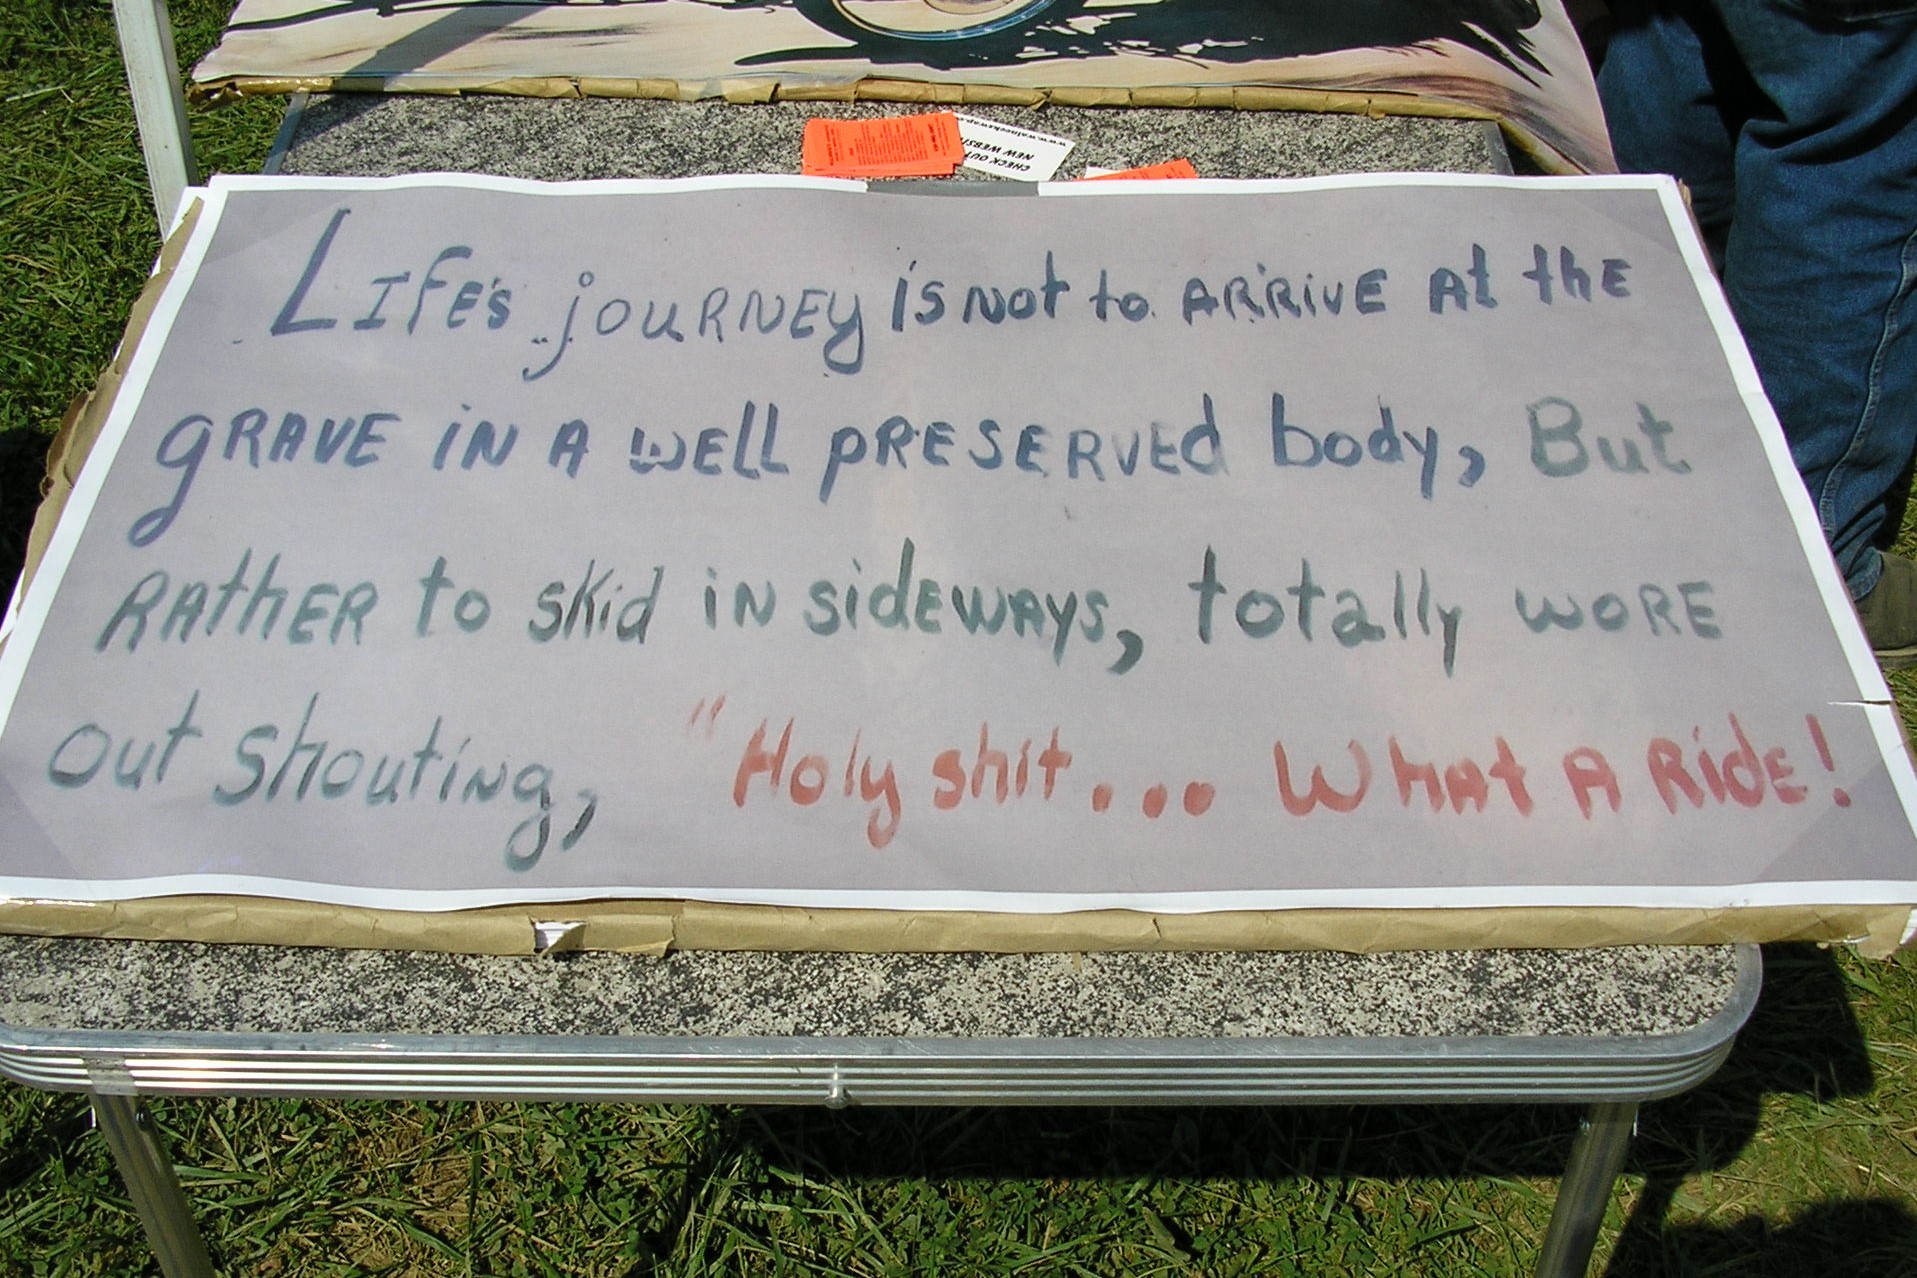 CHECK OUT
NEW WEBSI
Life's journey is not to arrive at the
grave in a well preserved body, But
rather to skid in sideways, totally wore
out shouting, "Holy shit... What a Ride!